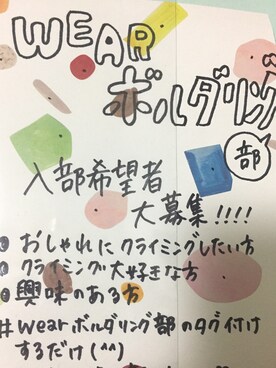 WEAR
ボルダリング
部
入部希望者
大募集!!!!
●おしゃれにクライミングしたい方
●クライミング大好きな方
●興味のある方
#wearボルダリング部のタグ付け
するだけ(^^)